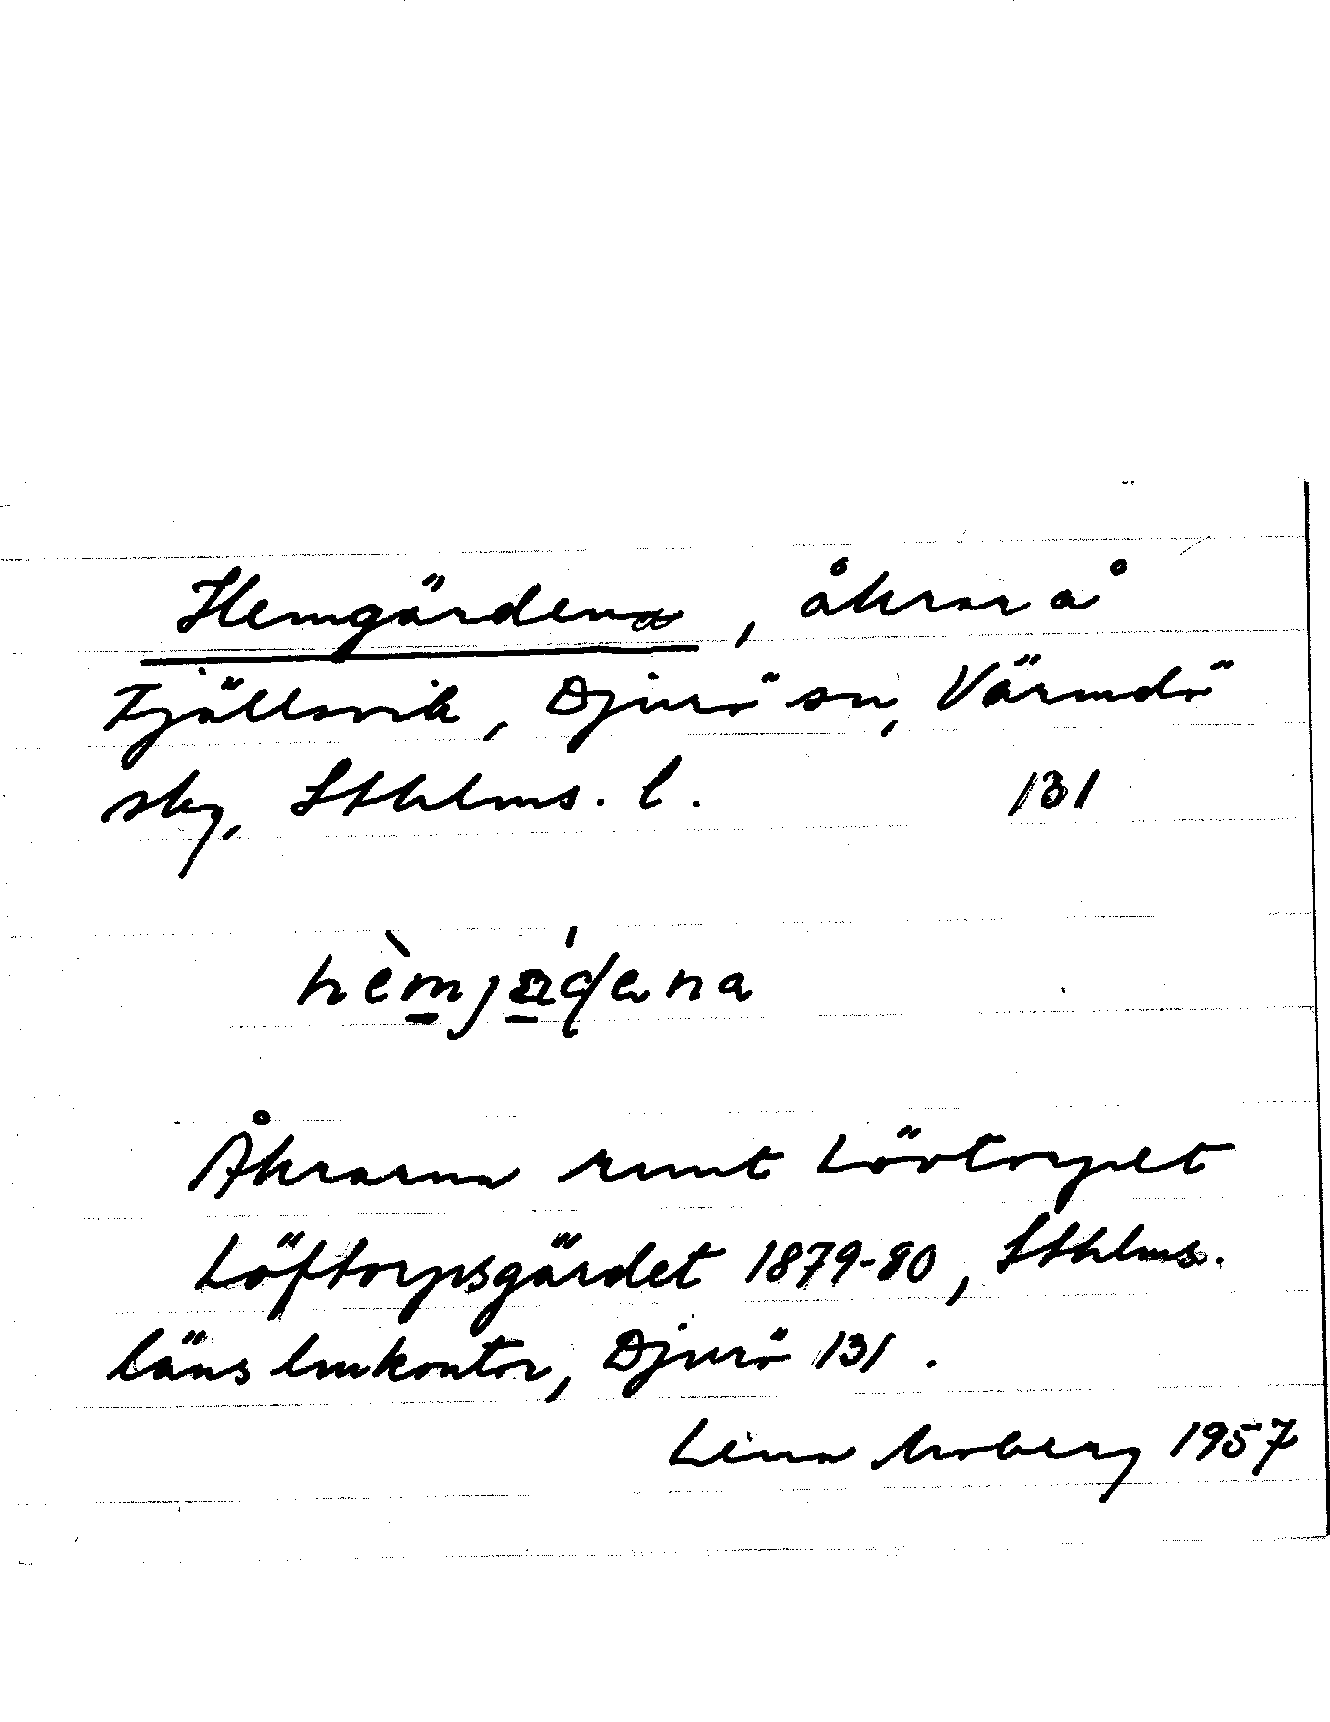 Hemgärdena, åkrar å
Fjällsvik, Djurö sn, Värmdö
skg, Sthlms. l. 131
Åkrarna runt Lövtorpet
Löftorpsgärdet 1879-80, Sthlms.
läns lmkontor, Djurö 131.
Lena Moberg 1957